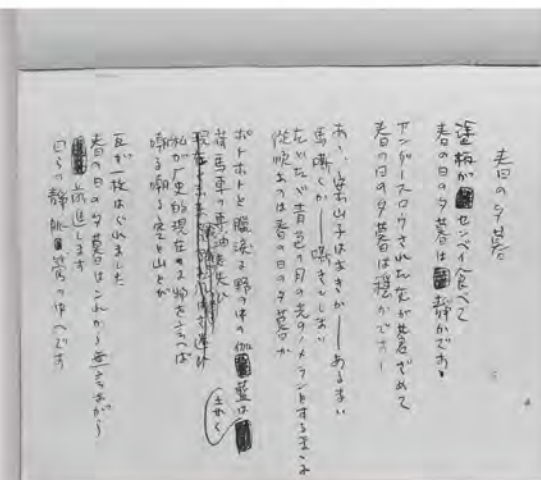 春の日の夕暮
塗板がセンベイ食べて
春の日の夕暮は静かです
アンダースロウされた灰が蒼ざめて
春の日の夕暮は穏かです
あゝ、案山子はなきか――あるまい
馬嘶くか――嘶きもしまい
たゞたゞ青色の月の光のノメランとするまゝに
従順なのは春の日の夕暮か
ポトホトと臘涙に野の中の伽藍は赤く
荷馬車の車輪 油を失ひ
私が歴史的現在に物を言へば
嘲る嘲る空と山とが
瓦が一枚はぐれました
春の日の夕暮はこれから無言ながら
前進します
自らの静脈管の中へです